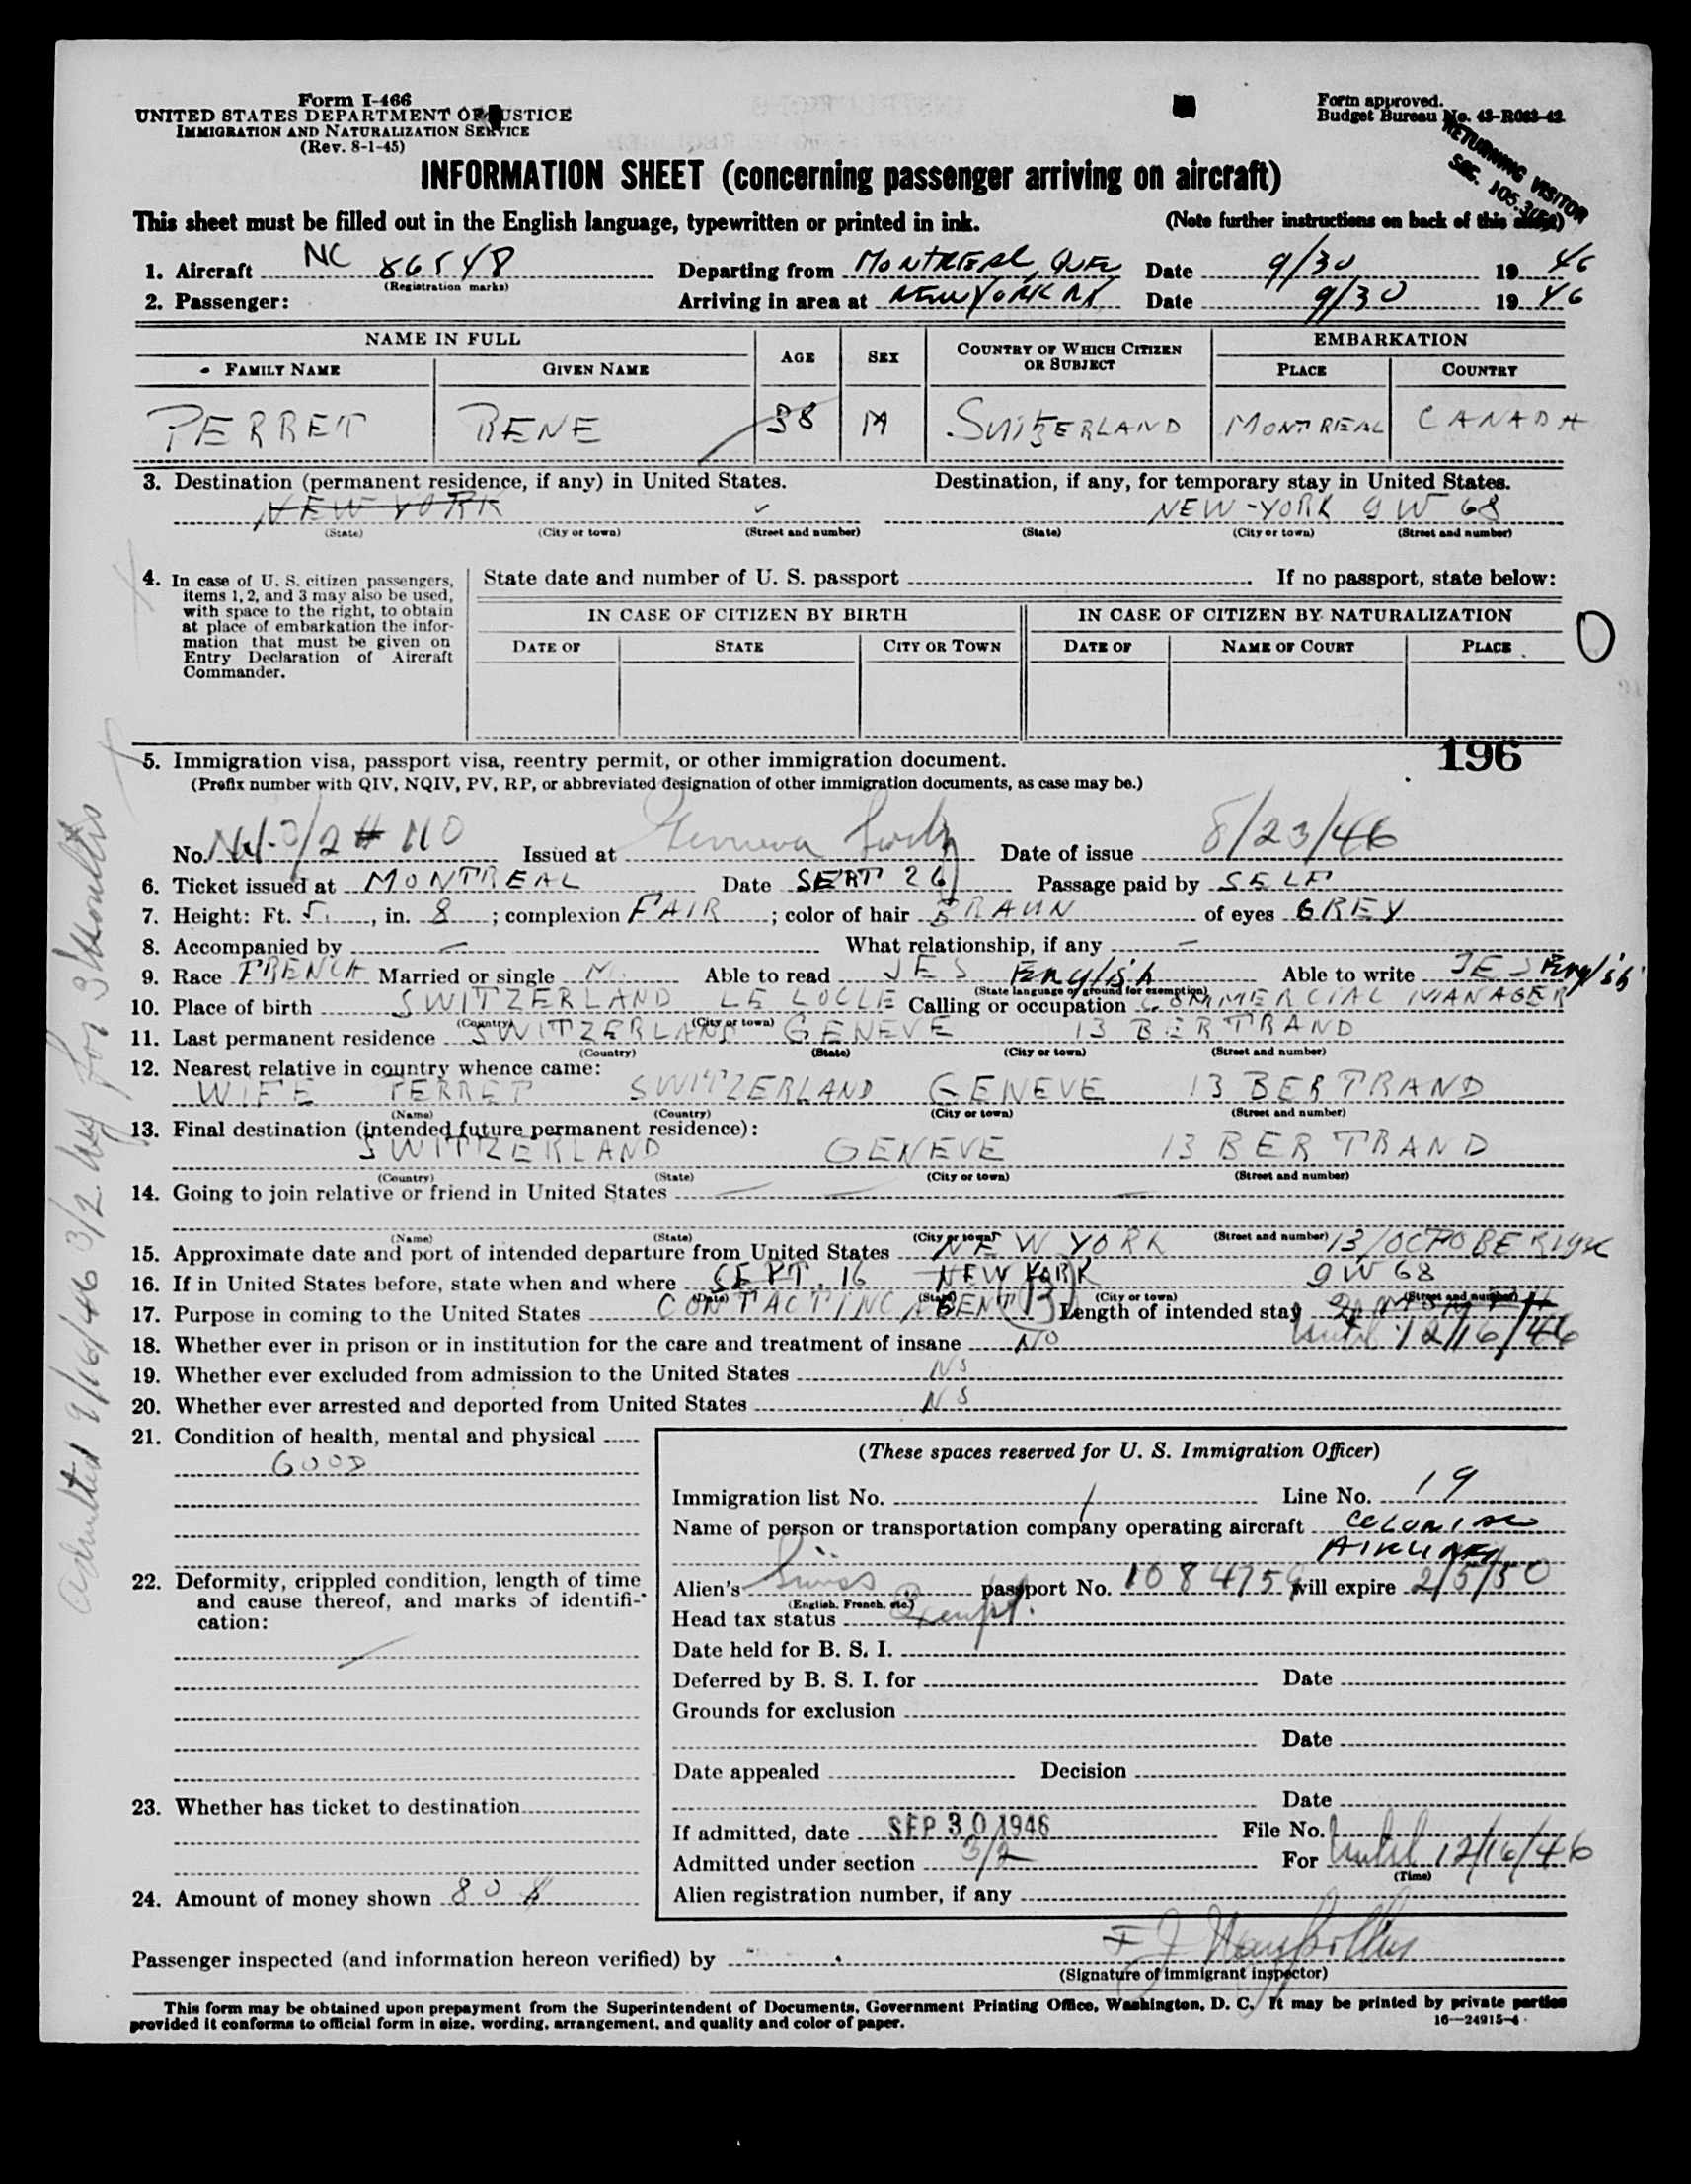 Form I-466
UNITED STATES DEPARTMENT OF JUSTICE
IMMIGRATION AND NATURALIZATION SERVICE
(Rev. 8-1-45)
Form approved.
Budget Bureau No. 43-R063-42
RETURNING VISITOR
SEC. 105.3
INFORMATION SHEET (concerning passenger arriving on aircraft)
This sheet must be filled out in the English language, typewritten or printed in ink. (Note further instructions on back of this sheet)
1. Aircraft NC 86548 Departing from MONTREAL, QUE Date 9/30 1946
(Registration marks)
2. Passenger: Arriving in area at NEW YORK NY Date 9/30 1946
NAME IN FULL AGE SEX COUNTRY OF WHICH CITIZEN OR SUBJECT EMBARKATION
FAMILY NAME GIVEN NAME PLACE COUNTRY
PERRET RENE 38 M SWITZERLAND MONTREAL CANADA
3. Destination (permanent residence, if any) in United States. Destination, if any, for temporary stay in United States.
NEW YORK NEW-YORK 9 W 68
(State) (City or town) (Street and number) (State) (City or town) (Street and number)
4. In case of U. S. citizen passengers, items 1, 2, and 3 may also be used, with space to the right, to obtain at place of embarkation the information that must be given on Entry Declaration of Aircraft Commander.
State date and number of U. S. passport If no passport, state below:
IN CASE OF CITIZEN BY BIRTH IN CASE OF CITIZEN BY NATURALIZATION
DATE OF STATE CITY OR TOWN DATE OF NAME OF COURT PLACE
196
5. Immigration visa, passport visa, reentry permit, or other immigration document.
(Prefix number with QIV, NQIV, PV, RP, or abbreviated designation of other immigration documents, as case may be.)
No. 3/2 # 110 Issued at Geneva Date of issue 8/23/46
6. Ticket issued at MONTREAL Date SEPT 26 Passage paid by SELF
7. Height: Ft. 5, in. 8; complexion FAIR; color of hair BRAUN of eyes GREY
8. Accompanied by — What relationship, if any —
9. Race FRENCH Married or single M. Able to read JES English Able to write JES English
(State language or ground for exemption)
10. Place of birth SWITZERLAND LE LOCLE Calling or occupation COMMERCIAL MANAGER
(Country) (City or town)
11. Last permanent residence SWITZERLAND GENEVE 13 BERTRAND
(Country) (State) (City or town) (Street and number)
12. Nearest relative in country whence came:
WIFE PERRET SWITZERLAND GENEVE 13 BERTRAND
(Name) (Country) (City or town) (Street and number)
13. Final destination (intended future permanent residence):
SWITZERLAND GENEVE 13 BERTRAND
(Country) (State) (City or town) (Street and number)
14. Going to join relative or friend in United States —
(Name) (State) (City or town) (Street and number)
15. Approximate date and port of intended departure from United States NEW YORK 13/OCTOBER
16. If in United States before, state when and where SEPT. 16 NEW YORK 9 W 68
(Date) (State) (City or town) (Street and number)
17. Purpose in coming to the United States CONTACTING AGENT Length of intended stay
until 12/16/46
18. Whether ever in prison or in institution for the care and treatment of insane NO
19. Whether ever excluded from admission to the United States NO
20. Whether ever arrested and deported from United States NO
21. Condition of health, mental and physical
GOOD
22. Deformity, crippled condition, length of time and cause thereof, and marks of identification:
23. Whether has ticket to destination
24. Amount of money shown 80 $
(These spaces reserved for U. S. Immigration Officer)
Immigration list No. 1 Line No. 19
Name of person or transportation company operating aircraft COLONIAL
AIRLINES
Alien's Swiss passport No. 1084759 will expire 2/5/50
(English, French, etc.)
Head tax status Exempt.
Date held for B. S. I.
Deferred by B. S. I. for Date
Grounds for exclusion
Date
Date appealed Decision
Date
If admitted, date SEP 30 1946 File No.
Admitted under section 3/2 For Until 12/16/46
(Time)
Alien registration number, if any
Passenger inspected (and information hereon verified) by
(Signature of immigrant inspector)
This form may be obtained upon prepayment from the Superintendent of Documents, Government Printing Office, Washington, D. C. It may be printed by private parties
provided it conforms to official form in size, wording, arrangement, and quality and color of paper.
16—24915-4
Admitted 9/16/46 3/2 for 3 months